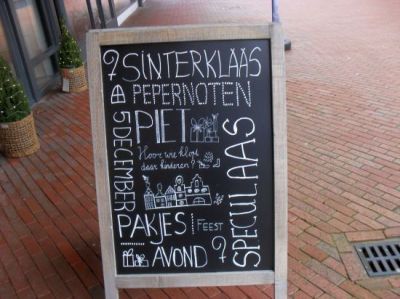 SINTERKLAAS
PEPERNOTEN
5 DECEMBER
PIET
Hoor wie klopt
daar kinderen?
SPECULAAS
PAKJES
FEEST
AVOND